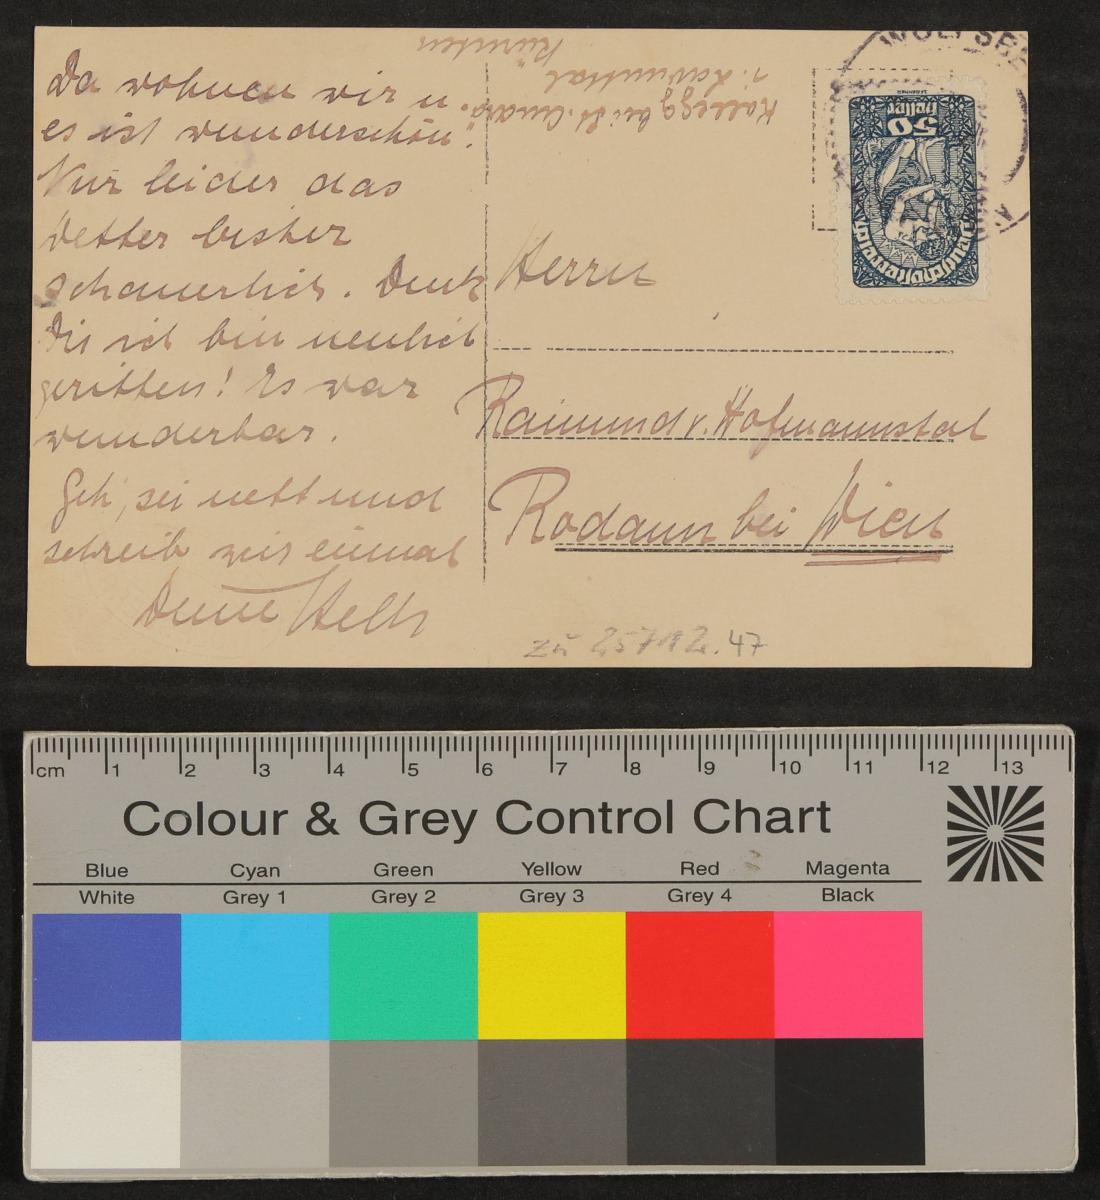 Da wohnen wir u.
es ist wunderschön!
Nur leider das
Wetter bisher
schauerlich. Denk
Dir ich bin neulich
geritten! Es war
wunderbar.
Geh, sei nett und
schreib mir einmal
Deine Helli
Kollegg bei St. Andrä.
i. Lavanttal
Kärnten
WOLFSBE
50
Heller
Deutschösterreich
Herrn
Raimund v. Hofmannstal
Rodaun bei Wien
zu 25712.47
cm 1 2 3 4 5 6 7 8 9 10 11 12 13
Colour & Grey Control Chart
Blue Cyan Green Yellow Red Magenta
White Grey 1 Grey 2 Grey 3 Grey 4 Black